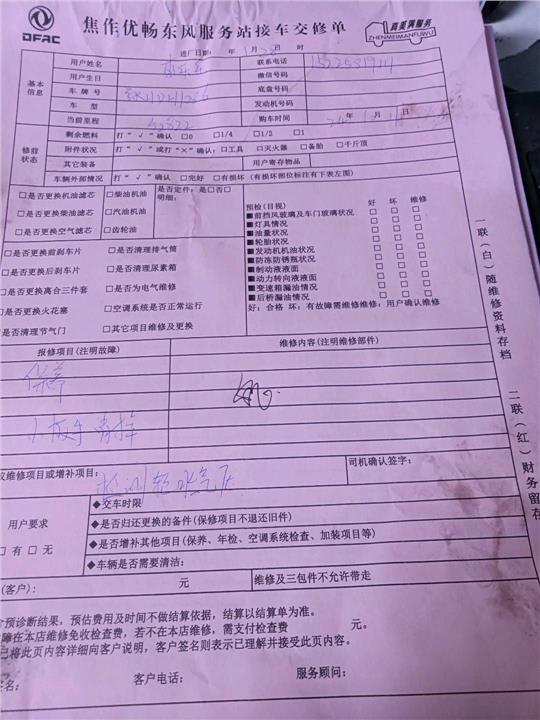 DFAC
焦作优畅东风服务站接车交修单
真美满服务
ZHENMEIMANFUWU
进厂日期: 年 1月28日 时
基本信息
用户姓名
联系电话
用户生日
微信号码
车牌号
底盘号码
车型
发动机号码
当前里程
购车时间 年 月 日
修前状态
剩余燃料 打“√”确认 □0 □1/4 □1/2 □1
附件状况 打“√”或打“×”确认: □工具 □灭火器 □备胎 □千斤顶
其它装备
用户寄存物品
车辆外部情况 打“√”确认 □完好 □有损坏 (有损坏部位标注有下表左图)
□是否更换机油滤芯 □柴油机油
□是否更换柴油滤芯 □汽油机油
□是否更换空气滤芯 □齿轮油
是否定件: 是□否□
明细:
□是否更换前刹车片 □是否清理排气筒
□是否更换后刹车片 □是否清理尿素箱
□是否更换离合三件套 □是否为电气维修
□是否更换火花塞 □空调系统是否正常运行
□是否清理节气门 □其它项目维修及更换
预检(目视) 好 坏 维修
■前挡风玻璃及车门玻璃状况 □ □ □
■灯具情况 □ □ □
■油量状况 □ □ □
■轮胎状况 □ □ □
■发动机机油状况 □ □ □
■防冻防锈瓶状况 □ □ □
■制动液液面 □ □ □
■动力转向液液面 □ □ □
■变速箱漏油情况 □ □ □
■后桥漏油情况 □ □ □
好: 合格 坏: 有故障需维修维修: 用户确认维修
报修项目(注明故障)
维修内容(注明维修部件)
保养
议维修项目或增补项目:
司机确认签字:
用户要求
□有 □无
◆交车时限
◆是否归还更换的备件(保修项目不退还旧件)
◆是否增补其他项目(保养、年检、空调系统检查、加装项目等)
◆车辆是否需要清洁:
(客户): 元
维修及三包件不允许带走
预诊断结果，预估费用及时间不做结算依据，结算以结算单为准。
障在本店维修免收检查费，若不在本店维修，需支付检查费 元。
已将此页内容详细向客户说明，客户签名则表示已理解并接受此页内容。
签名:
客户电话:
服务顾问:
一联(白)随维修资料存档
二联(红)财务留存